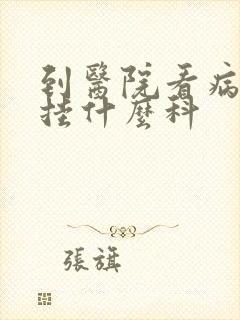 到醫院看病
挂什麼科
張旗